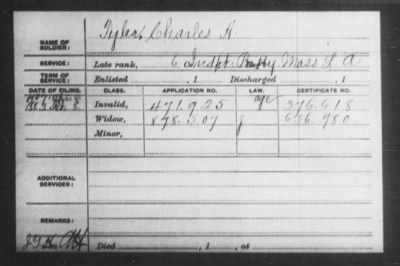 NAME OF SOLDIER: Tyler, Charles A
SERVICE: Late rank, 6 Indpt Batty Mass L A
TERM OF SERVICE: Enlisted , 1 Discharged , 1
DATE OF FILING. CLASS. APPLICATION NO. LAW. CERTIFICATE NO.
Invalid, 471.925 age 376.618
Widow, 878.507 636.950
Minor,
ADDITIONAL SERVICES:
REMARKS:
Died , 1 , at